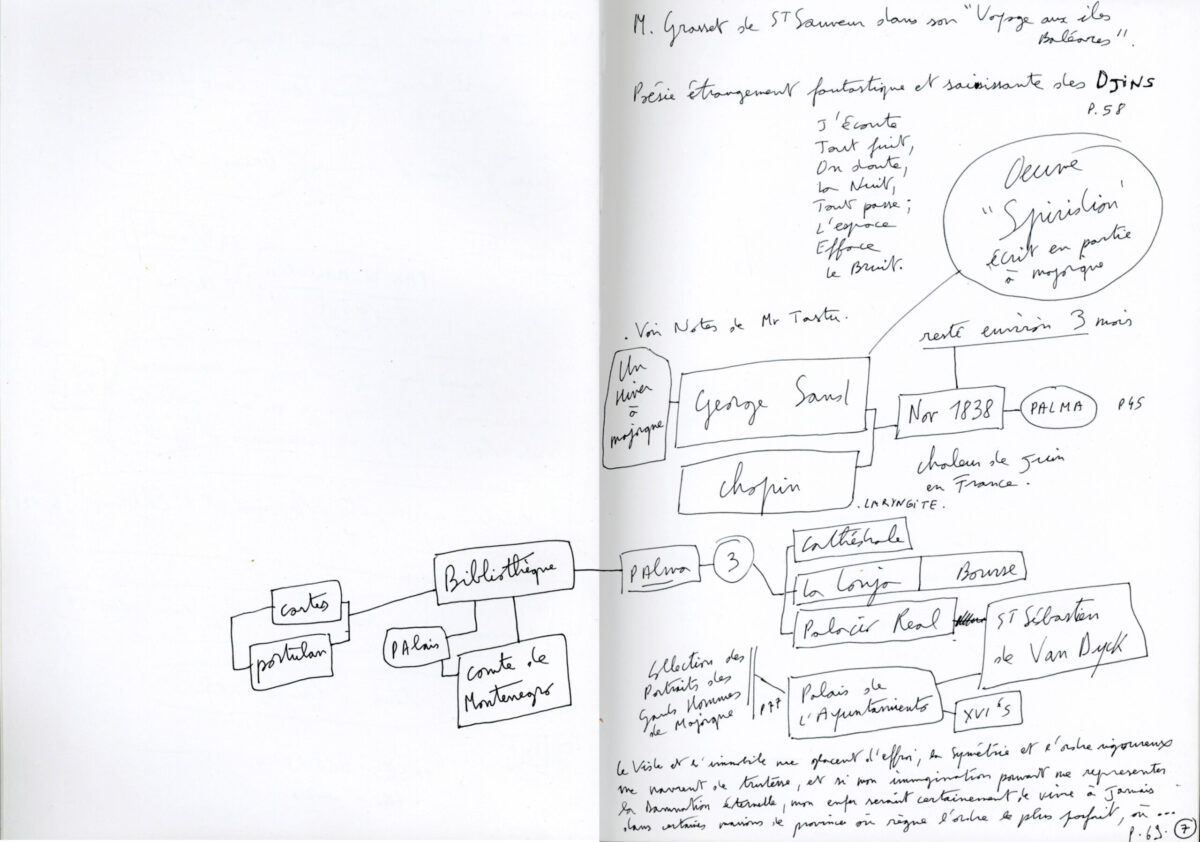 M. Grasset de ST Sauveur dans son "Voyage aux îles
Baléares".
Poésie étrangement fantastique et saisissante des DJINS
P.58
J'Écoute
Tout fuit,
On doute,
La Nuit,
Tout passe;
L'espace
Efface
Le Bruit.
Oeuvre
"Spiridion"
écrit en partie
à majorque
. Voir Notes de Mr Tastu.
reste environ 3 mois
Un
Hiver
à
majorque
George Sand
Nov 1838
PALMA
P45
Chopin
chaleur de Juin
en France.
. LARYNGITE.
Bibliothèque
PAlma
3
Cathédrale
La Lonja
Bourse
Palacio Real
cartes
portulan
PAlais
comte de
Montenegro
ST Sébastien
de Van Dyck
Collection des
Portraits des
Grands Hommes
de Majorque
P77
Palais de
L'Ayuntamiento
XVI°S
Le Vide et l'immobile me glacent d'effroi, la Symétrie et l'ordre rigoureux
me navrent de tristesse, et si mon immagination pouvait me representer
la Damnation éternelle, mon enfer serait certainement de vivre à Jamais
dans certaines maisons de province où règne l'ordre le plus parfait, où ...
P.69.
7